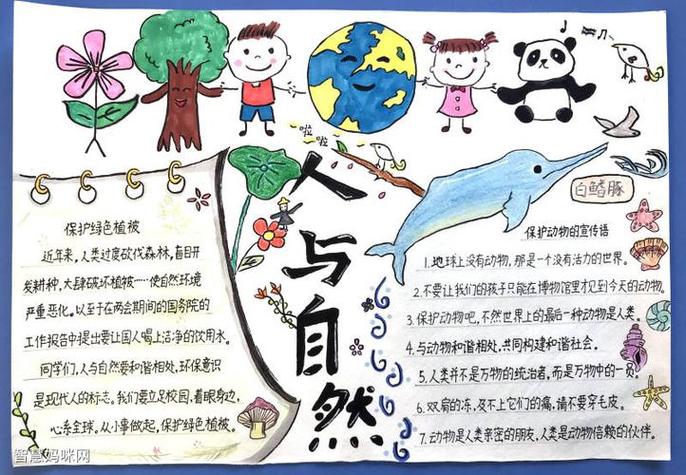 啦
啦
人
与
自
然
白鳍豚
保护绿色植被
近年来，人类过度砍伐森林，盲目开
发耕种，大肆破坏植被……使自然环境
严重恶化。以至于在两会期间的国务院的
工作报告中提出要让国人喝上洁净的饮用水。
同学们，人与自然要和谐相处，环保意识
是现代人的标志，我们要立足校园，着眼身边，
心系全球，从小事做起，保护绿色植被。
保护动物的宣传语
1.地球上没有动物，那是一个没有活力的世界。
2.不要让我们的孩子只能在博物馆里才见到今天的动物。
3.保护动物吧，不然世界上的最后一种动物是人类。
4.与动物和谐相处，共同构建和谐社会。
5.人类并不是万物的统治者，而是万物中的一员。
6.双肩的冻，及不上它们的痛，请不要穿毛皮。
7.动物是人类亲密的朋友，人类是动物信赖的伙伴。
智慧妈咪网